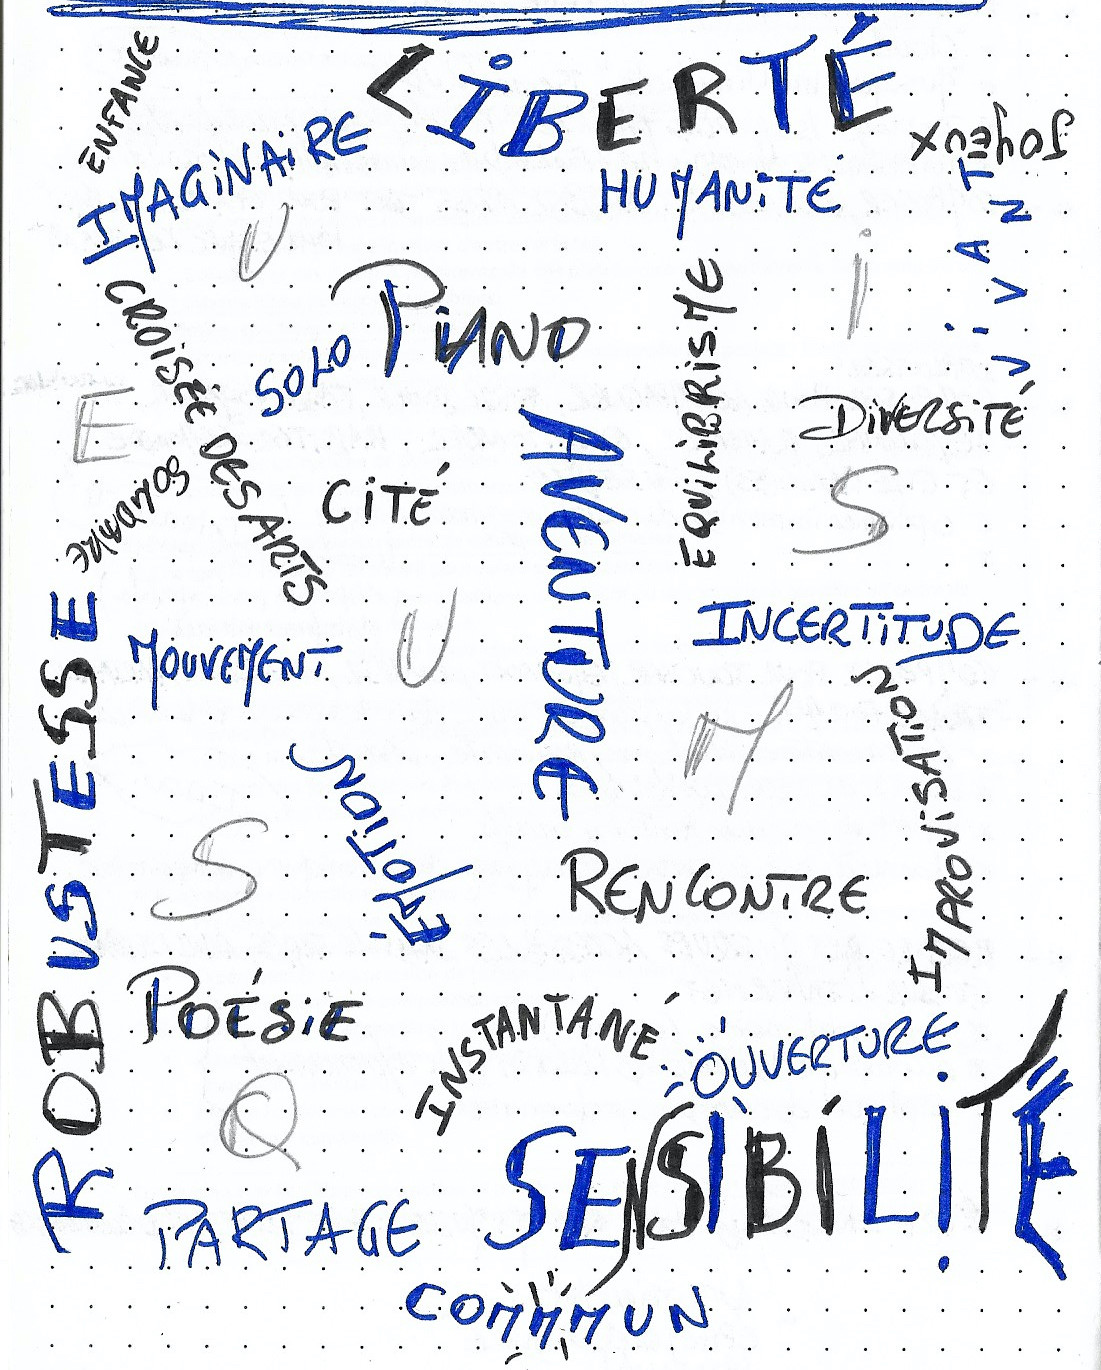 ENFANCE
LiBERTÉ
JOyEUX
iMAGiNAiRE
HUMANiTÉ
ViVANT
U
i
CROiSÉE DES ARTS
SOLO PiANO
EQUiLiBRiSME
E
DiVERSiTÉ
AVENTURE
SOLiDAiRE
CiTÉ
S
ROBUSTESSE
U
INCERTiTUDE
MOUVEMENT
M
IMPROViSATiON
ÉMOTiON
S
RENCONTRE
POÉSiE
INSTANTANÉ
OUVERTURE
Q
SENSIBiLiTÉ
PARTAGE
COMMUN